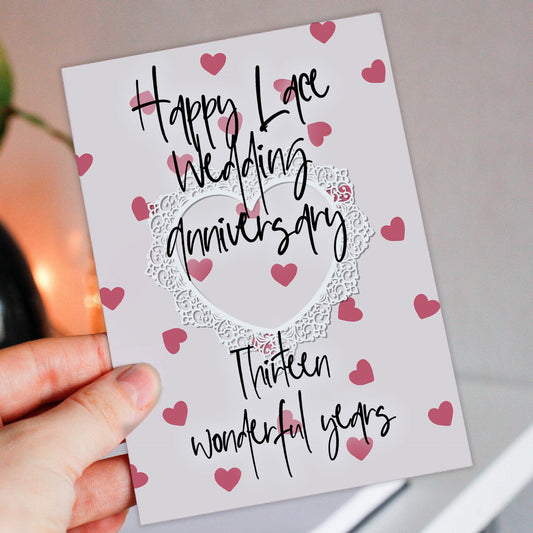 Happy Lace
Wedding
anniversary
Thirteen
wonderful years